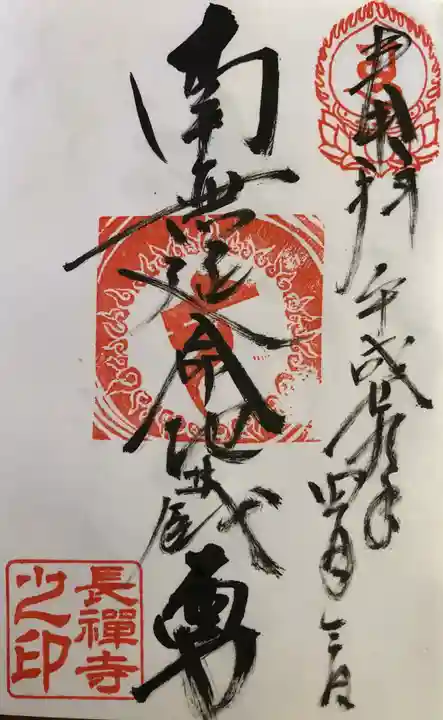 奉拝
平成卅一年
四月三日
南無延命地蔵尊
長禪寺
之印